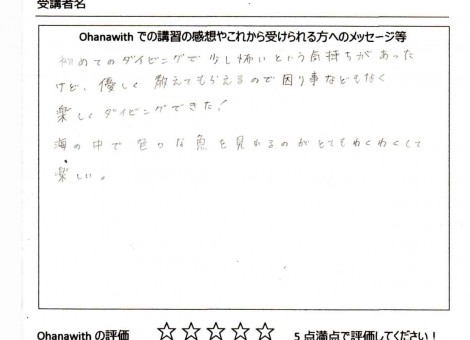 受講者名
Ohanawith での講習の感想やこれから受けられる方へのメッセージ等
初めてのダイビングで少し怖いという気持ちがあった
けど、優しく教えてもらえるので困り事などもなく
楽しくダイビングできた!
海の中で色々な魚を見れるのがとてもわくわくして
楽しい。
Ohanawith の評価 ☆☆☆☆☆ 5 点満点で評価してください!